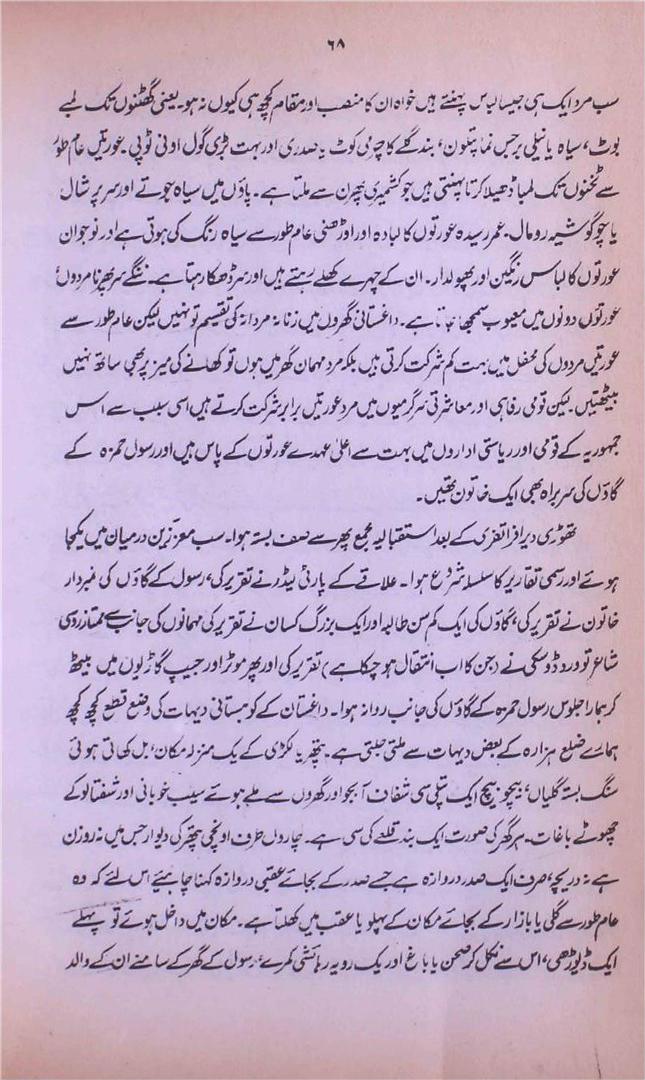 ۶۸
سب مرد ایک ہی جیسا لباس پہنتے ہیں خواہ ان کا منصب اور مقام کچھ ہی کیوں نہ ہو۔ یعنی گھٹنوں تک لمبے
بوٹ، سیاہ یا نیلی برجس نما پتلون، بند گلے کا چرمی کوٹ یا صدری اور بہت بڑی گول اونی ٹوپی۔ عورتیں عام طور
سے ٹخنوں تک لمبا ڈھیلا کرتا پہنتی ہیں جو کشمیری پھرن سے ملتا ہے۔ پاؤں میں سیاہ جوتے اور سر پر شال
یا چوگوشیہ رومال۔ عمر رسیدہ عورتوں کا لبادہ اور اوڑھنی عام طور سے سیاہ رنگ کی ہوتی ہے اور نوجوان
عورتوں کا لباس رنگین اور پھولدار۔ ان کے چہرے کھلے رہتے ہیں اور سر ڈھکا رہتا ہے۔ ننگے سر پھرنا مردوں
عورتوں دونوں میں معیوب سمجھا جاتا ہے۔ داغستانی گھروں میں زنانہ مردانہ کی تقسیم تو نہیں لیکن عام طور سے
عورتیں مردوں کی محفل میں بہت کم شرکت کرتی ہیں بلکہ مرد مہمان گھر میں ہوں تو کھانے کی میز پر بھی ساتھ نہیں
بیٹھتیں۔ لیکن قومی رفاہی اور معاشرتی سرگرمیوں میں مرد عورتیں برابر شرکت کرتے ہیں اسی سبب سے اس
جمہوریہ کے قومی اور ریاستی اداروں میں بہت سے اعلیٰ عہدے عورتوں کے پاس ہیں اور رسول حمزہ کے
گاؤں کی سربراہ بھی ایک خاتون تھیں۔
تھوڑی دیر افراتفری کے بعد استقبالیہ مجمع پھر سے صف بستہ ہوا۔ سب معززین درمیان میں یکجا
ہوئے اور رسمی تقاریر کا سلسلہ شروع ہوا۔ علاقے کے پارٹی لیڈر نے تقریر کی، رسول کے گاؤں کی نمبردار
خاتون نے تقریر کی، گاؤں کی ایک کم سن طالبہ اور ایک بزرگ کسان نے تقریر کی مہمانوں کی جانب سے ممتاز روسی
شاعر تووردوسکی نے (جن کا اب انتقال ہو چکا ہے) تقریر کی اور پھر موٹر اور جیپ گاڑیوں میں بیٹھ
کر ہمارا جلوس رسول حمزہ کے گاؤں کی جانب روانہ ہوا۔ داغستان کے کوہستانی دیہات کی وضع قطع کچھ کچھ
ہمارے ضلع ہزارہ کے بعض دیہات سے ملتی جلتی ہے۔ پتھر یا لکڑی کے یک منزلہ مکان، بل کھاتی ہوئی
سنگ بستہ گلیاں، بیچوں بیچ ایک پتلی سی شفاف آبجو اور گھروں سے ملے ہوئے سیب خوبانی اور شفتالو کے
چھوٹے باغات۔ ہر گھر کی صورت ایک بند قلعے کی سی ہے۔ چاروں طرف اونچی پتھر کی دیوار جس میں نہ روزن
ہے نہ دریچہ، صرف ایک صدر دروازہ ہے جسے صدر کے بجائے عقبی دروازہ کہنا چاہئیے اس لئے کہ وہ
عام طور سے گلی یا بازار کے بجائے مکان کے پہلو یا عقب میں کھلتا ہے۔ مکان میں داخل ہوئے تو پہلے
ایک ڈیوڑھی، اس سے نکل کر صحن یا باغ اور یک رویہ رہائشی کمرے، رسول کے گھر کے سامنے ان کے والد